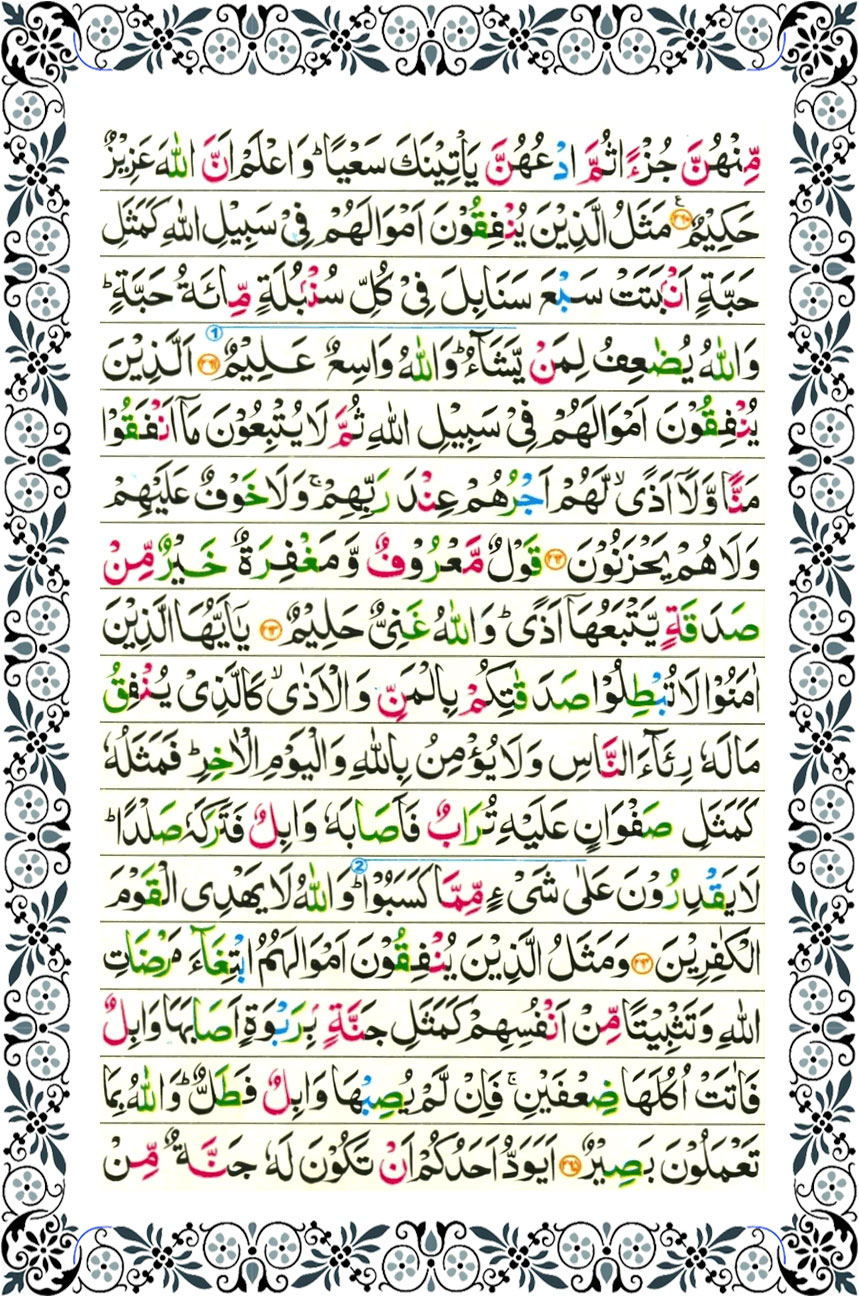 مِّنْهُنَّ جُزْءًا ثُمَّ ادْعُهُنَّ يَاْتِيْنَكَ سَعْيًا ؕ وَاعْلَمْ اَنَّ اللّٰهَ عَزِيْزٌ
حَكِيْمٌ ﴿۲۶۰﴾ ع مَثَلُ الَّذِيْنَ يُنْفِقُوْنَ اَمْوَالَهُمْ فِيْ سَبِيْلِ اللّٰهِ كَمَثَلِ
حَبَّةٍ اَنْۢبَتَتْ سَبْعَ سَنَابِلَ فِيْ كُلِّ سُنْۢبُلَةٍ مِّائَةُ حَبَّةٍ ؕ
وَاللّٰهُ يُضٰعِفُ لِمَنْ يَّشَآءُ ؕ وَاللّٰهُ وَاسِعٌ عَلِيْمٌ ﴿۲۶۱﴾ اَلَّذِيْنَ ①
يُنْفِقُوْنَ اَمْوَالَهُمْ فِيْ سَبِيْلِ اللّٰهِ ثُمَّ لَا يُتْبِعُوْنَ مَآ اَنْفَقُوْا
مَنًّا وَّلَآ اَذًى ۙ لَّهُمْ اَجْرُهُمْ عِنْدَ رَبِّهِمْ ۚ وَلَا خَوْفٌ عَلَيْهِمْ
وَلَا هُمْ يَحْزَنُوْنَ ﴿۲۶۲﴾ قَوْلٌ مَّعْرُوْفٌ وَّمَغْفِرَةٌ خَيْرٌ مِّنْ
صَدَقَةٍ يَّتْبَعُهَآ اَذًى ؕ وَاللّٰهُ غَنِيٌّ حَلِيْمٌ ﴿۲۶۳﴾ يٰٓاَيُّهَا الَّذِيْنَ
اٰمَنُوْا لَا تُبْطِلُوْا صَدَقٰتِكُمْ بِالْمَنِّ وَالْاَذٰى ۙ كَالَّذِيْ يُنْفِقُ
مَالَهٗ رِئَآءَ النَّاسِ وَلَا يُؤْمِنُ بِاللّٰهِ وَالْيَوْمِ الْاٰخِرِ ؕ فَمَثَلُهٗ
كَمَثَلِ صَفْوَانٍ عَلَيْهِ تُرَابٌ فَاَصَابَهٗ وَابِلٌ فَتَرَكَهٗ صَلْدًا ؕ
لَا يَقْدِرُوْنَ عَلٰى شَيْءٍ مِّمَّا كَسَبُوْا ؕ وَاللّٰهُ لَا يَهْدِي الْقَوْمَ ②
الْكٰفِرِيْنَ ﴿۲۶۴﴾ وَمَثَلُ الَّذِيْنَ يُنْفِقُوْنَ اَمْوَالَهُمُ ابْتِغَآءَ مَرْضَاتِ
اللّٰهِ وَتَثْبِيْتًا مِّنْ اَنْفُسِهِمْ كَمَثَلِ جَنَّةٍۭ بِرَبْوَةٍ اَصَابَهَا وَابِلٌ
فَاٰتَتْ اُكُلَهَا ضِعْفَيْنِ ۚ فَاِنْ لَّمْ يُصِبْهَا وَابِلٌ فَطَلٌّ ؕ وَاللّٰهُ بِمَا
تَعْمَلُوْنَ بَصِيْرٌ ﴿۲۶۵﴾ اَيَوَدُّ اَحَدُكُمْ اَنْ تَكُوْنَ لَهٗ جَنَّةٌ مِّنْ